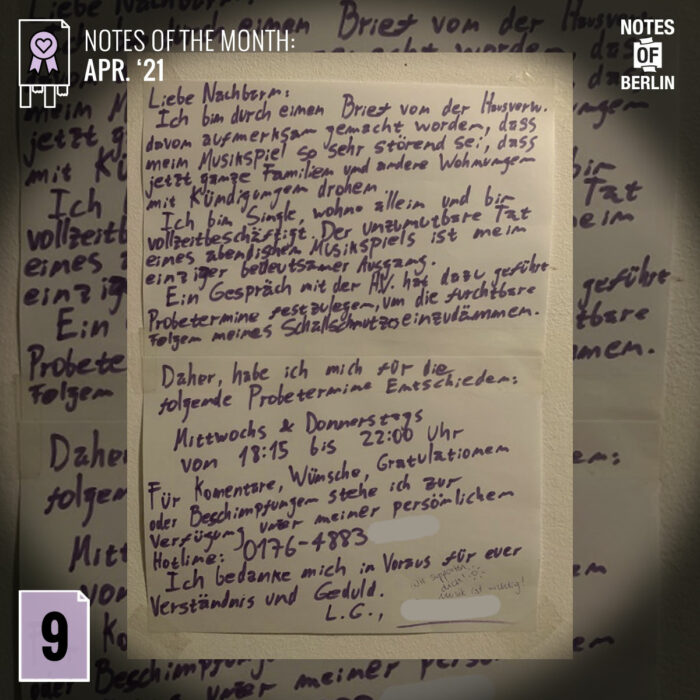 NOTES OF THE MONTH:
APR. ‘21
NOTES
OF
BERLIN
Liebe Nachbarn:
Ich bin durch einen Brief von der Hausverw.
davon aufmerksam gemacht worden, dass
mein Musikspiel so sehr störend sei, dass
jetzt ganze Familien und andere Wohnungen
mit Kündigungen drohen.
Ich bin Single, wohne allein und bin
vollzeitbeschäftigt. Der unzumutbare Tat
eines abendischen Musikspiels ist mein
einziger bedeutsamer Ausgang.
Ein Gespräch mit der H.V. hat dazu geführt
Probetermine festzulegen, um die furchtbare
Folgen meines Schallschmutzes einzudämmen.
Daher, habe ich mich für die
folgende Probetermine Entschieden:
Mittwochs & Donnerstags
von 18:15 bis 22:00 Uhr
Für Komentare, Wünsche, Gratulationen
oder Beschimpfungen stehe ich zur
Verfügung unter meiner persönlichen
Hotline: 0176-4883
Ich bedanke mich in Voraus für euer
Verständnis und Geduld.
L.G.,
Wir supporten
dich!
Musik ist wichtig!
9